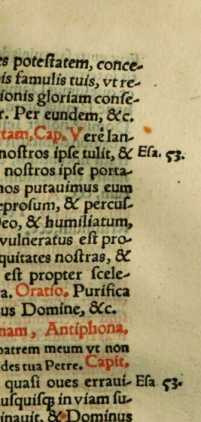 es poteſtatem, conce-
is famulis tuis, vt re-
ionis gloriam conſe-
r. Per eundem, &c.
tam, Cap. Verè lan-
noſtros ipſe tulit, & Eſa. 53.
noſtros ipſe porta-
nos putauimus eum
eproſum, & percuſ-
eo, & humiliatum,
vulneratus eſt pro-
quitates noſtras, &
eſt propter ſcele-
a. Oratio. Purifica
us Domine, &c.
nam, Antiphona.
patrem meum vt non
des tua Petre. Capit.
quaſi oues erraui- Eſa 53.
uſquiſq; in viam ſu-
inauit. & Dominus